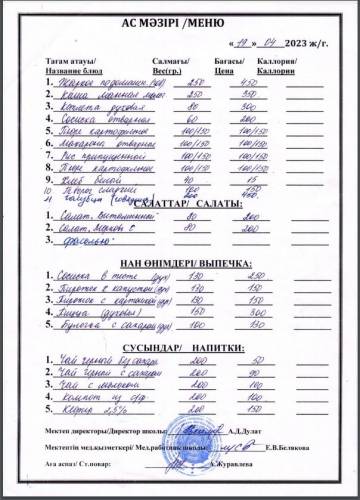 АС МӘЗІРІ /МЕНЮ
« 19 » 04 2023 ж/г.
Тағам атауы/ Салмағы/ Бағасы/ Каллория/
Название блюд Вес(гр.) Цена Каллории
1. Жаркое по домашнему 250 450
2. Каша манная мол 250 350
3. Котлета руговая 80 300
4. Сосиска отварная 60 200
5. Пюре картофельное 100/150 100/150
6. Макароны отварные 100/150 100/150
7. Рис припущенный 100/150 100/150
8. Пюре картофельное 100/150 100/150
9. Хлеб белый 40 15
10 100 150
11 голубцы 200 450
САЛАТТАР/ САЛАТЫ:
1. Салат. Витаминный 80 200
2. Салат. 80 200
3. фасолью
НАН ӨНІМДЕРІ/ ВЫПЕЧКА:
1. Сосиска в тесте (дух) 130 250
2. Пирожок с капустой (дух) 130 150
3. Пирожок с картошкой (дух) 130 150
4. Пицца (духовая) 150 300
5. Булочка с сахаром (дух) 100 130
СУСЫНДАР/ НАПИТКИ:
1. Чай черный без сахара 200 50
2. Чай черный с сахаром 200 90
3. Чай с молоком 200 100
4. Компот из с/ф 200 100
5. Кефир 2,5% 200 150
Мектеп директоры/Директор школы: А.Д.Дулат
Мектептің мед.қызметкері/ Мед.работник школы: Е.В.Белякова
Аға аспаз/ Ст.повар: А.Журавлева